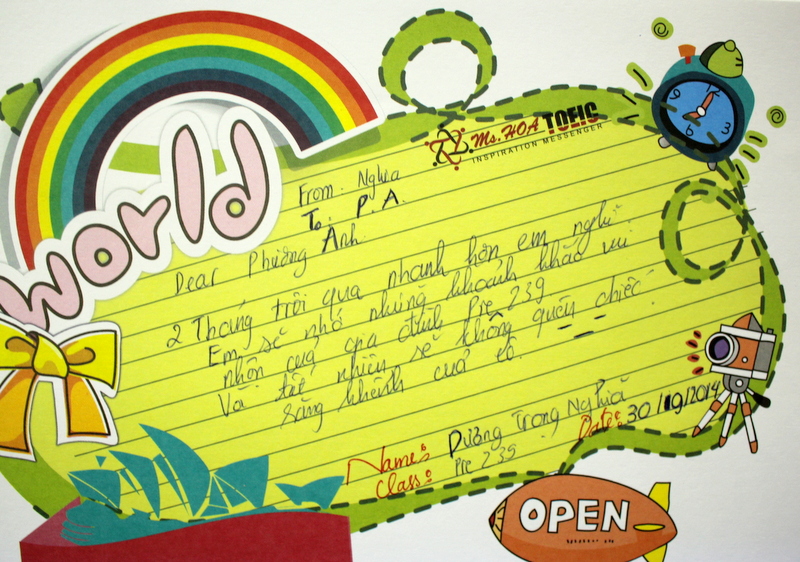 world
Ms. HOA TOEIC
INSPIRATION MESSENGER
From. Nghĩa
To. P.A.
Dear Phương Anh.
2 Tháng trôi qua nhanh hơn em nghĩ.
Em sẽ nhớ những khoảnh khắc vui
nhộn của gia đình Pre 239
Và tất nhiên sẽ không quên chiếc
răng khểnh của cô.
Name: Dương Trọng Nghĩa
Date: 30/09/2014
Class: Pre 239
OPEN